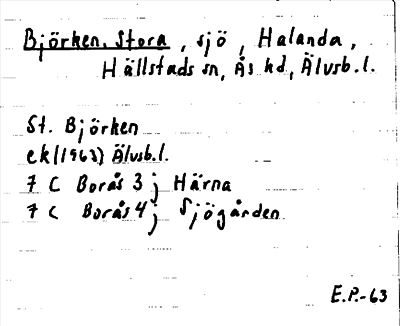 Björken, Stora, sjö, Halanda,
Hällstads sn, Ås hd, Älvsb.l.
St. Björken
ek(1963) Älvsb.l.
7 C Borås 3 j Härna
7 C Borås 4 j Sjögården
E.P.-63